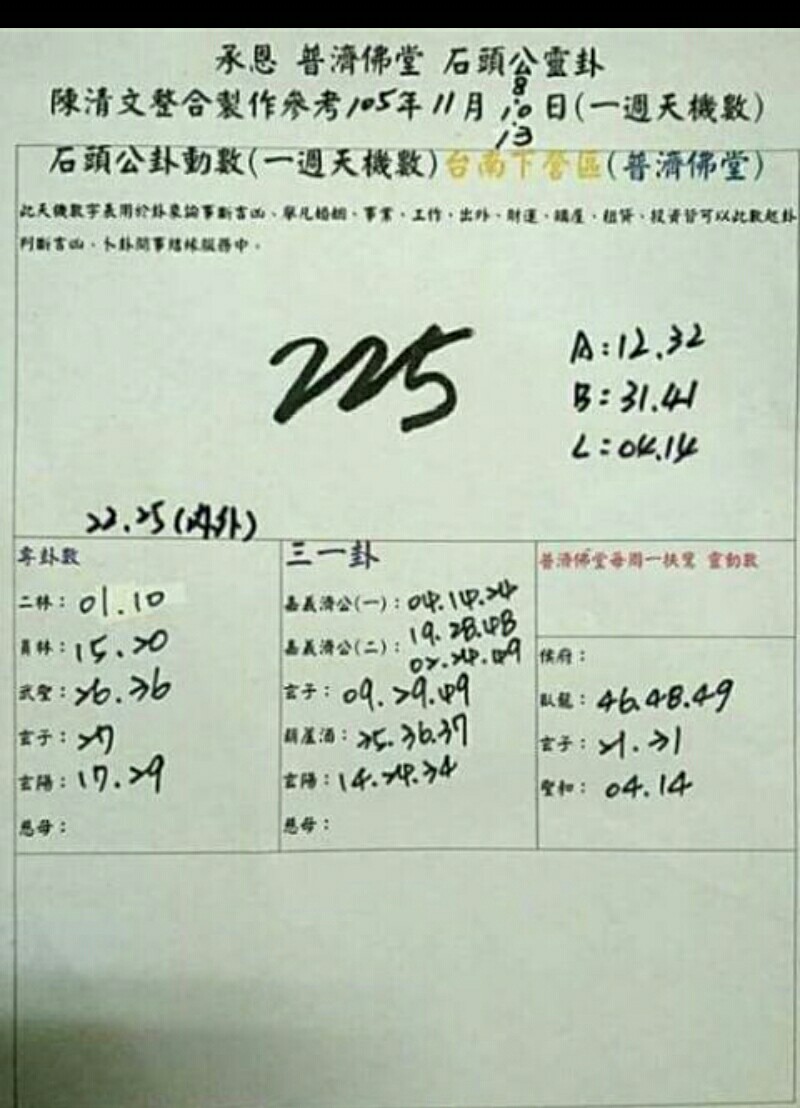 承恩 普濟佛堂 石頭公靈卦
陳清文整合製作參考105年11月8.10.13日(一週天機數)
石頭公卦動數(一週天機數)台南下營區(普濟佛堂)
此天機數字表用於卦象論事斷吉凶、舉凡婚姻、事業、工作、出外、財運、購屋、租貸、投資皆可以此數起卦
判斷吉凶、卜卦問事結緣服務中。
225
A:12.32
B:31.41
C:04.14
22.25(內卦)
專卦數
二林:01.10
員林:15.20
武聖:26.36
玄子:27
玄陽:17.29
慈母:
三一卦
嘉義濟公(一):04.14.24
嘉義濟公(二):19.28.48
02.24.49
玄子:09.29.49
葫蘆酒:25.36.37
玄陽:14.24.34
慈母:
普濟佛堂每周一扶鸞 靈動數
侯府:
臥龍:46.48.49
玄子:21.31
聖和:04.14